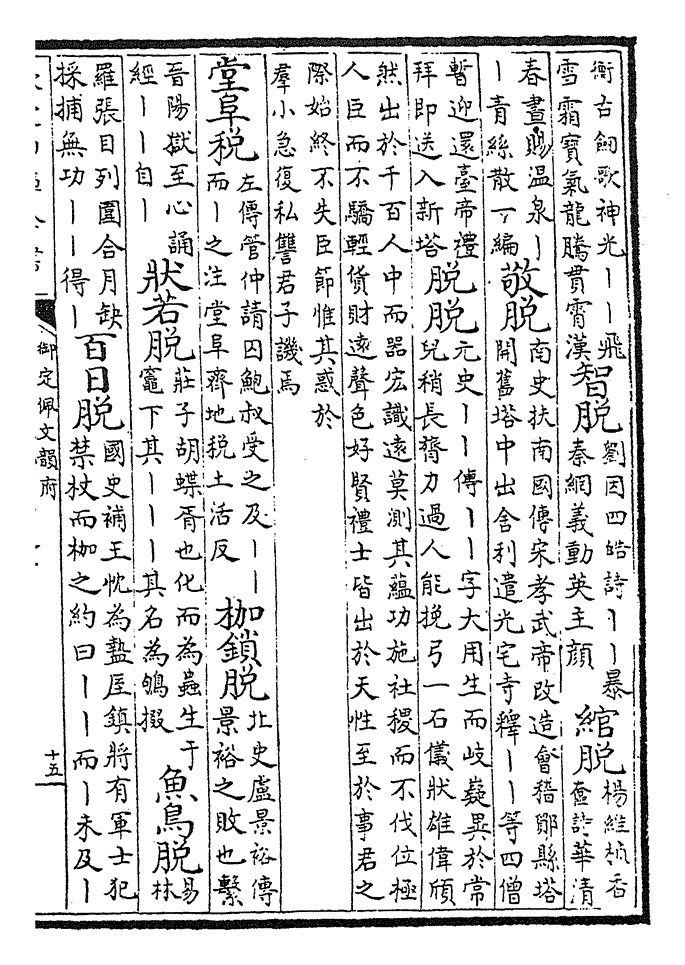 衡古劒歌神光丨丨飛
雪霜寶氣龍騰貫霄漢智脱劉因四皓詩丨丨暴
秦網義動英主顔 綰脱楊維楨香
奩詩華清
春晝賜温泉丨
丨青絲散下編敬脱南史扶南國傳宋孝武帝改造會稽鄮縣塔
開舊塔中出舍利遣光宅寺釋丨丨等四僧
暫迎還臺帝禮
拜即送入新塔脱脱元史丨丨傳丨丨字大用生而岐嶷異於常
兒稍長膂力過人能挽弓一石儀狀雄偉頎
然出於千百人中而器宏識遠莫測其藴功施社稷而不伐位極
人臣而不驕輕貨財遠聲色好賢禮士皆出於天性至於事君之
際始終不失臣節惟其惑於
羣小急復私讐君子譏焉
堂阜税左傳管仲請囚鮑叔受之及丨丨
而丨之注堂阜齊地税土活反 枷鎖脱北史盧景裕傳
景裕之敗也繫
晉陽獄至心誦
經丨丨自丨 狀若脱莊子胡蝶胥也化而為蟲生于
竈下其丨丨丨其名為鴝掇 魚鳥脱易
林
羅張目列圍合月缺
採捕無功丨丨得丨 百日脱國史補王忱為盩厔鎮將有軍士犯
禁杖而枷之約曰丨丨而丨未及丨
御定佩文韻府
十五